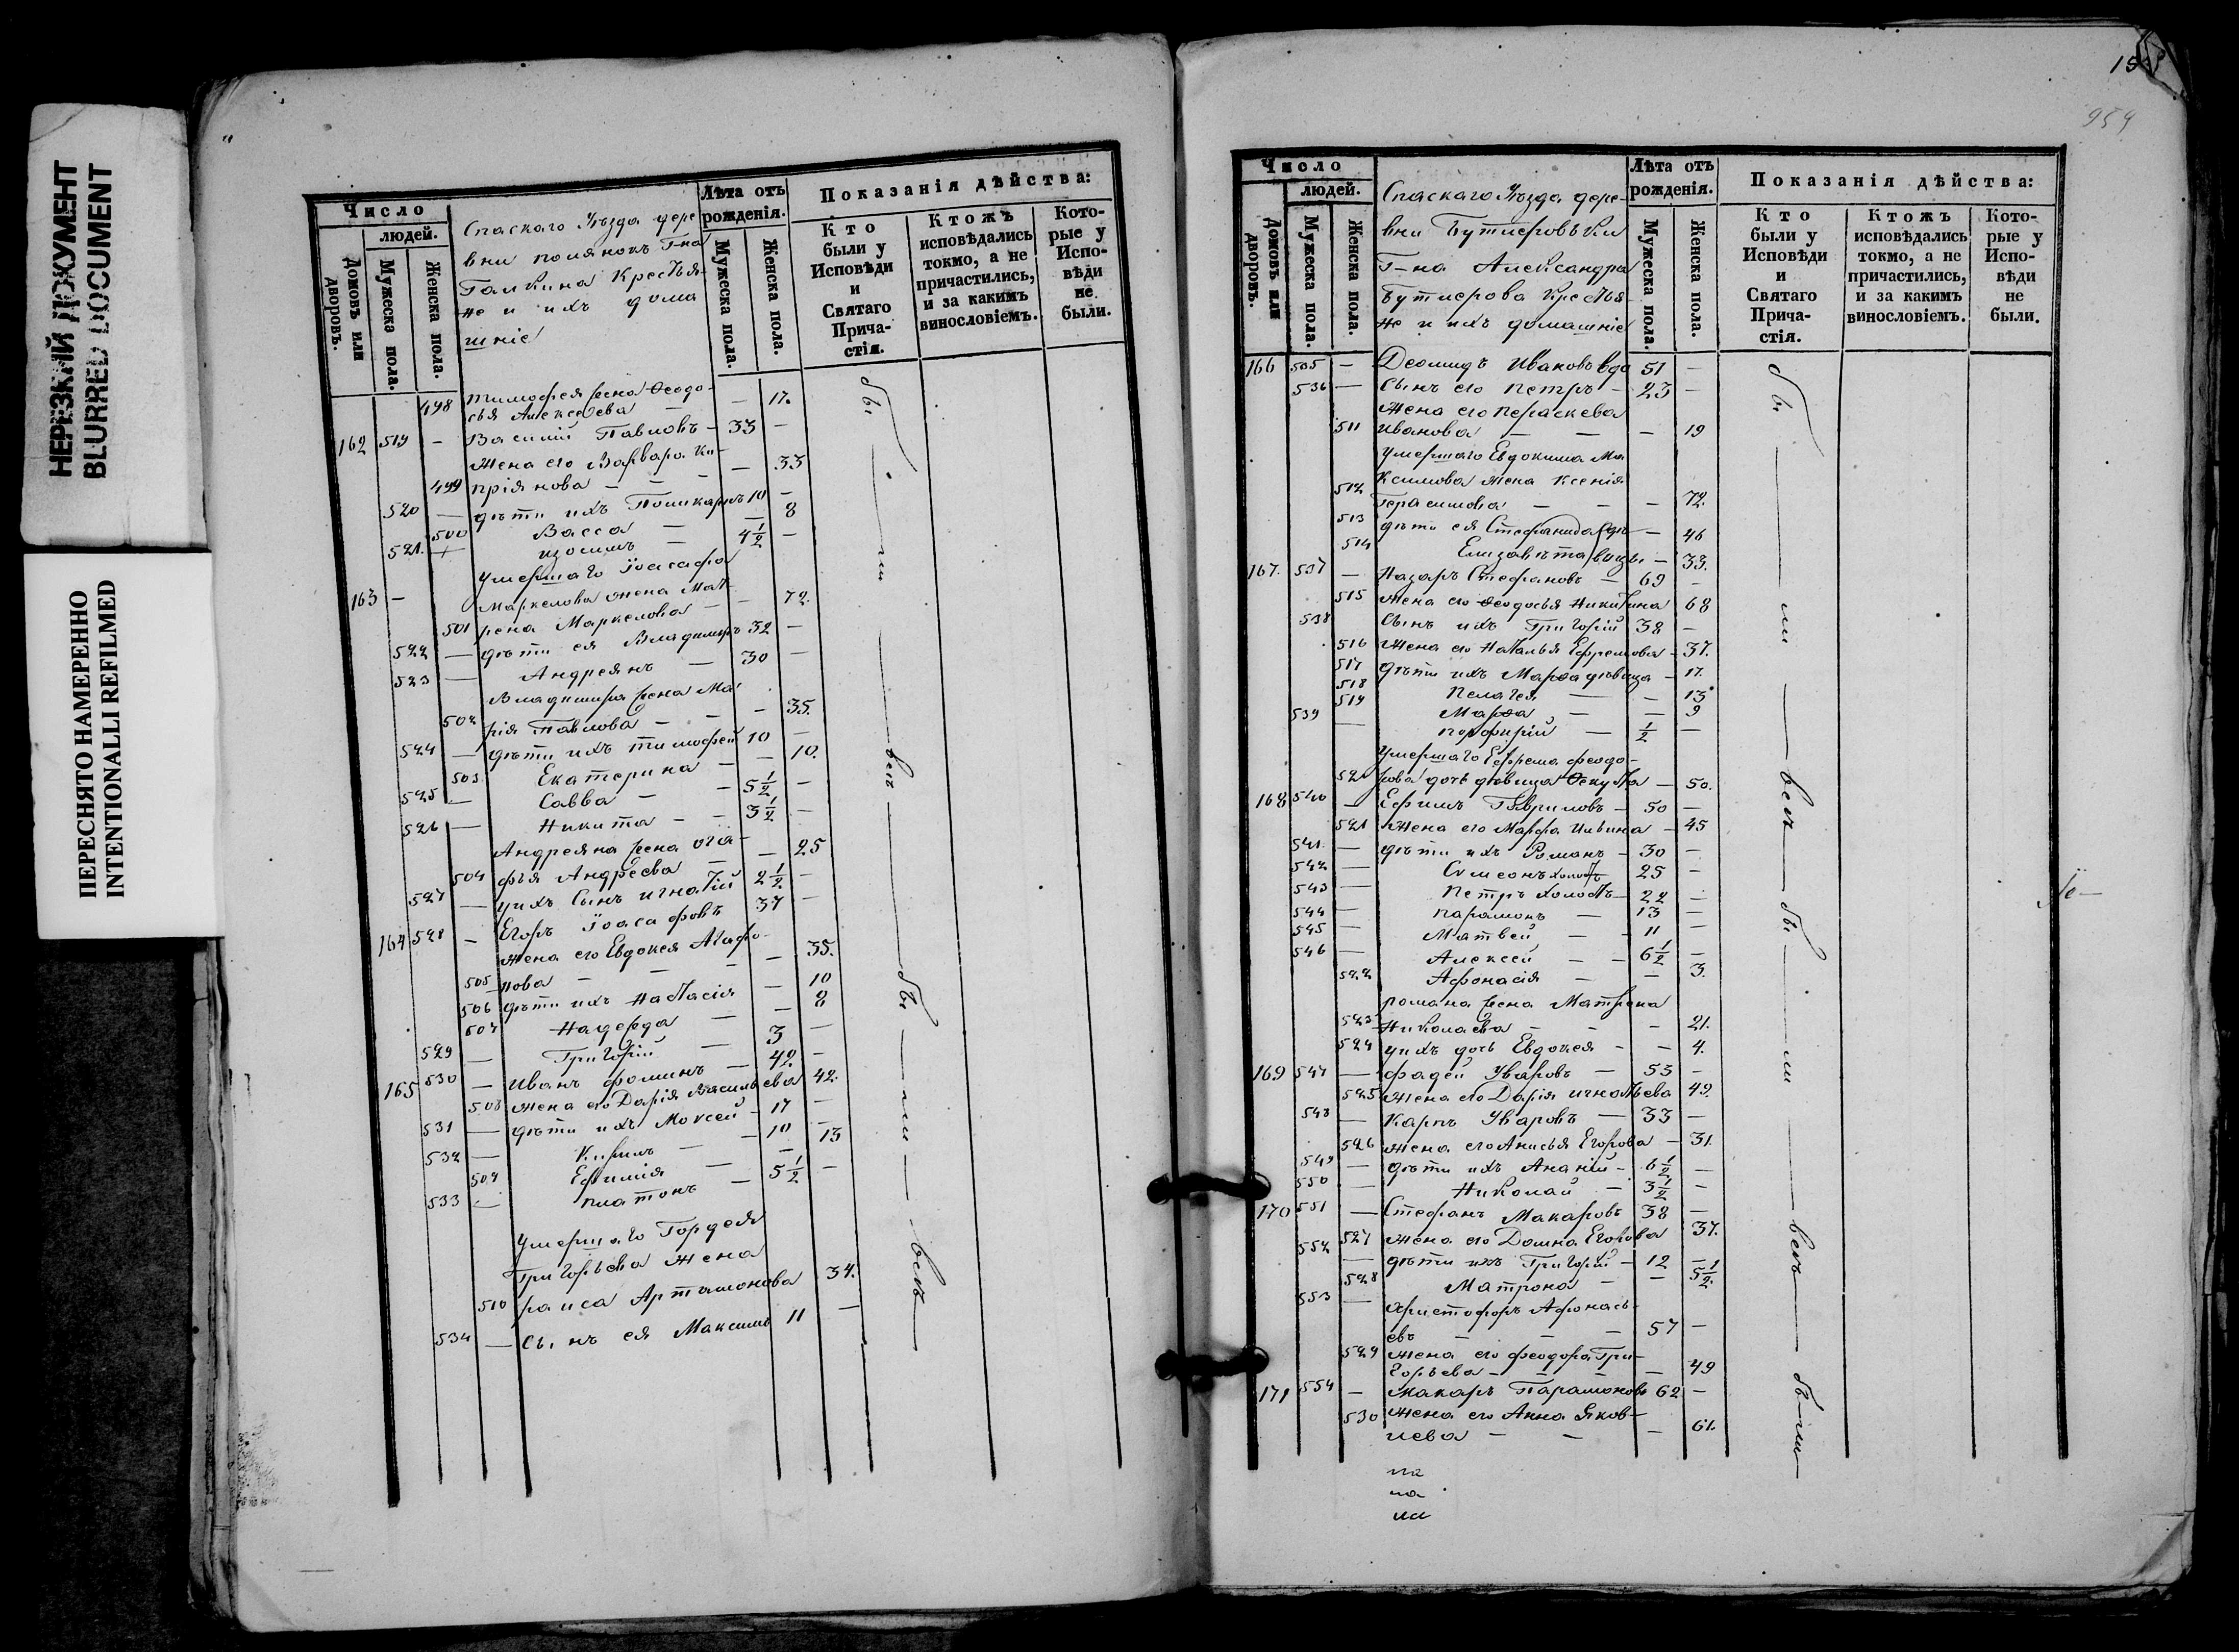 НЕРЕЗКИЙ ДОКУМЕНТ
BLURRED DOCUMENT
ПЕРЕСНЯТО НАМЕРЕННО
INTENTIONALLI REFILMED
Число
людей.
Домовъ или дворовъ.
Мужеска пола.
Женска пола.
Спаскаго Уѣзда дере
вни полянокъ Г-на
Галкина Крестья-
не и ихъ дома
шніе
Лѣта отъ рожденія.
Мужеска пола.
Женска пола.
Показанія дѣйства:
Кто были у Исповѣди и Святаго Причастія.
Ктожъ исповѣдались токмо, а не причастились, и за какимъ винословіемъ.
Которые у Исповѣди не были.
498 Тимофея жена Феодо-
сья Алексѣева — — 17.
162 519 — Василий Павловъ — 33 —
Жена его Варвара Ки-
499 пріянова — — — 33
520 — дѣти ихъ Поликарпъ 10 —
500 Васса — — 8
521. — изосимъ — 4 1/2 —
163 — Умершаго Іоасафа
Маркелова жена Мат-
501 рена Маркелова — — 72.
522 — дѣти ея Владимиръ 32 —
523 — Андреянъ — 30 —
Владимира жена Ма
502 рія Павлова — — — 35.
524 — дѣти ихъ тимофей 10 —
503 Екатерина — — 10.
525 — Савва — — 5 1/2 —
526 — Никита — — 3 1/2 —
Андреяна жена ога-
504 фья Андрѣева — — 25
527 — у ихъ сынъ игнатій 2 1/2 —
164 528 — Егоръ Іоасафовъ 37 —
жена его Евдокея Агафо-
505 нова — — — 35.
506 дѣти ихъ Настасія — 10
507 Надежда — — 8
529 — Григорій — 3 —
165 530 — Иванъ фоминъ — 42. —
508 жена его Дарія Васильева 42.
531 — дѣти ихъ Моксей — 17 —
532 — Кирилъ — 10 —
509 Ефимія — — 13
533 — платонъ — 5 1/2 —
Умершаго Гордея
Григорьева жена
510 раиса Артамонова 34.
534 — Сынъ ея Максимъ 11 —
бы — ли — все — бы — ли — все
954
Число
людей.
Домовъ или дворовъ.
Мужеска пола.
Женска пола.
Спаскаго Уѣзда дере-
вни Бутлеровъки
Г-на Александра
Бутлерова Кресьтя-
не и ихъ домашніе
Лѣта отъ рожденія.
Мужеска пола.
Женска пола.
Показанія дѣйства:
Кто были у Исповѣди и Святаго Причастія.
Ктожъ исповѣдались токмо, а не причастились, и за какимъ винословіемъ.
Которые у Исповѣди не были.
166 535 — Деомидъ Ивановъ вдо 51 —
536 — Сынъ его петръ — 23 —
жена его пераскева
511 иванова — — — 19
Умершаго Евдокима Ма
ксимова жена Ксенія
512 Герасимова — — — 72.
513 дѣти ея Стефанида дѣ- — 46
514 Елизавѣта вицы — 33.
167. 537 — Назаръ Стефановъ — 69 —
515 жена его Феодосья Никитина 68
538 Сынъ ихъ Григорій 38 —
516 жена его Наталья Ефремова — 37.
517 дѣти ихъ Марфа дѣвица — 17.
518 Пелагея — — 13
519 Марфа — — 9
539 — порфирій — 1/2 —
Умершаго Ефрема феодо-
520 рова дочь дѣвица Фекуста — 50.
168 540 — Ефимъ Гавриловъ — 50 —
521 жена его Марфа Ильина — 45
541 — дѣти ихъ Романъ — 30 —
542 — Симеонъ холост 25 —
543 — Петръ холостъ — 22 —
544 — парамонъ — 13 —
545 — Матвей — — 11 —
546 — Алексей — — 6 1/2 —
522 Афонасія — — 3.
романа жена Матрона
523 Николаева — — — 21.
524 у ихъ дочь Евдокея — — 4.
169 547 — фадей Уваровъ — 53 —
525 жена его Дарія игнатьева 49.
548 — Карпъ Уваровъ — 33 —
526 жена его Анисья Егорова — 31.
549 — дѣти ихъ Ананій — 6 1/2 —
550 — Николай — 3 1/2 —
170 551 — Стефанъ Макаровъ 38 —
527 жена его Домна Егорова 37.
552 — дѣти ихъ Григорій — 12 —
528 Матрона — — 5 1/2.
553 — Христофоръ Афонась-
евъ — — — 57 —
529 жена его феодора Гри-
горьева — — — 49
171 554 — Макаръ Парамоновъ 62 —
530 жена его Анна Яков-
лева — — — 61.
бы — ли — все — бы — ли — все — были